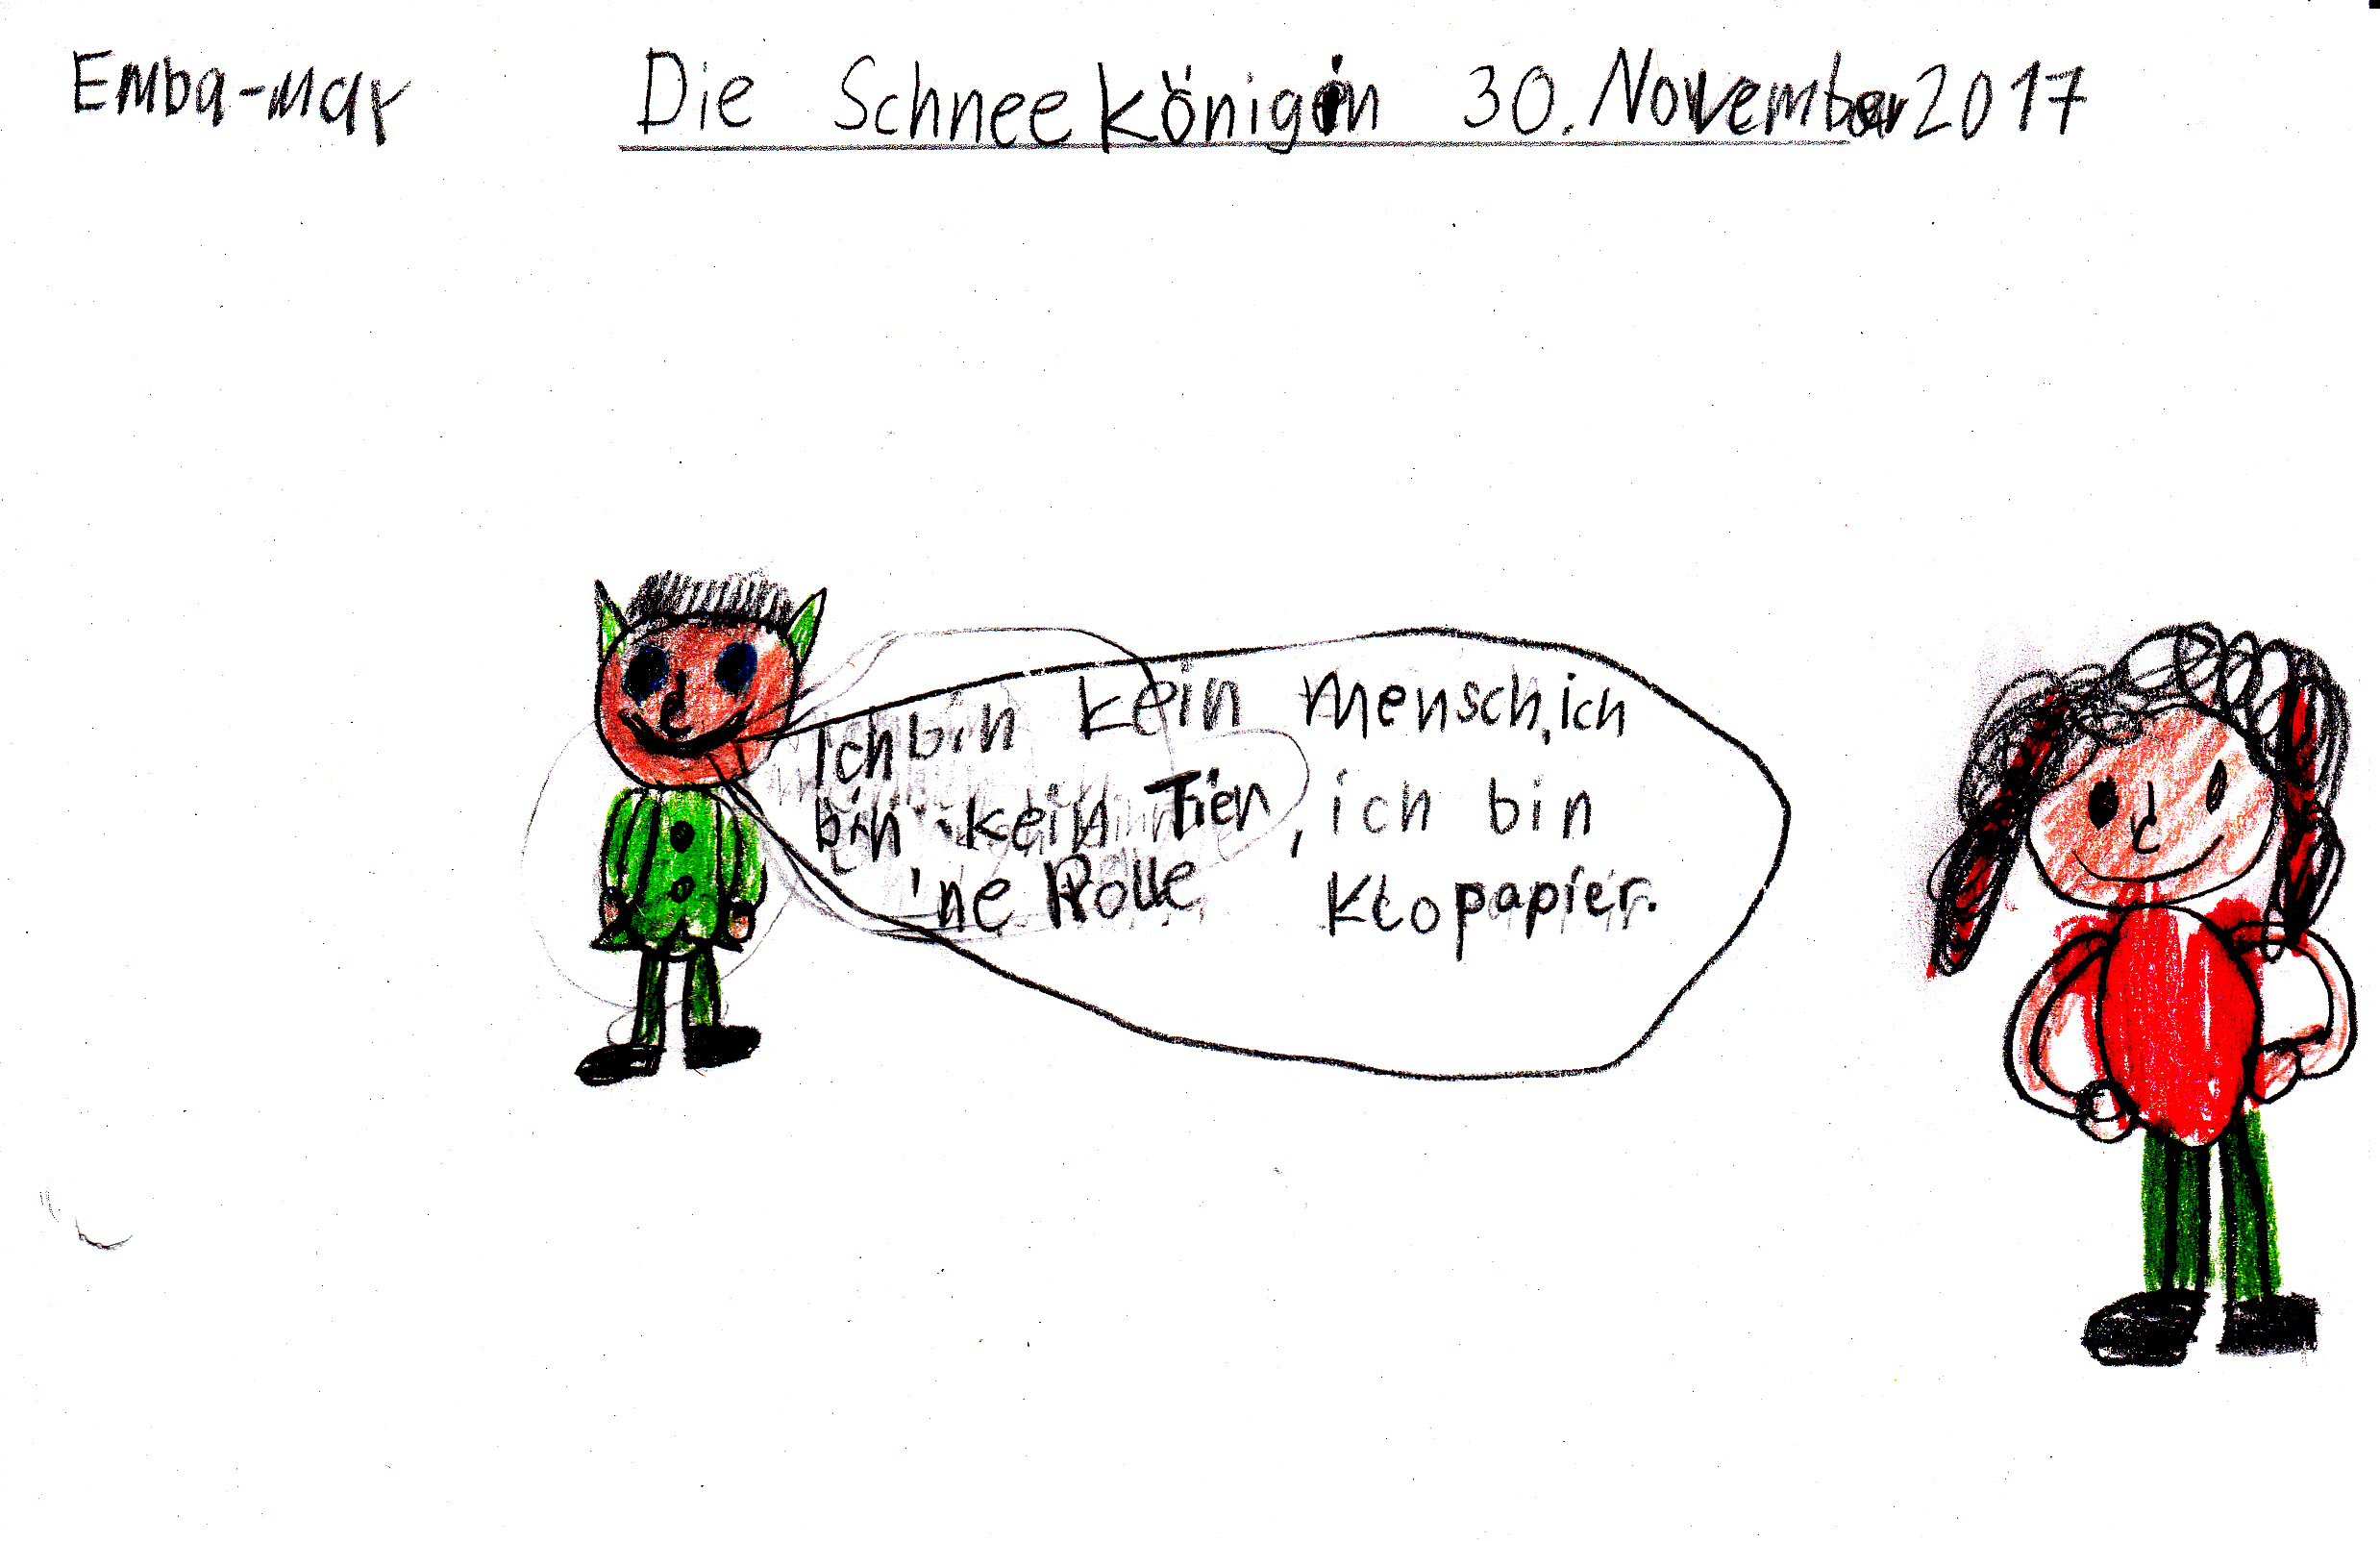 Emba-Max Die Schneekönigin 30. November 2017
Ich bin kein Mensch, ich
bin kein Tier, ich bin
'ne Rolle Klopapier.